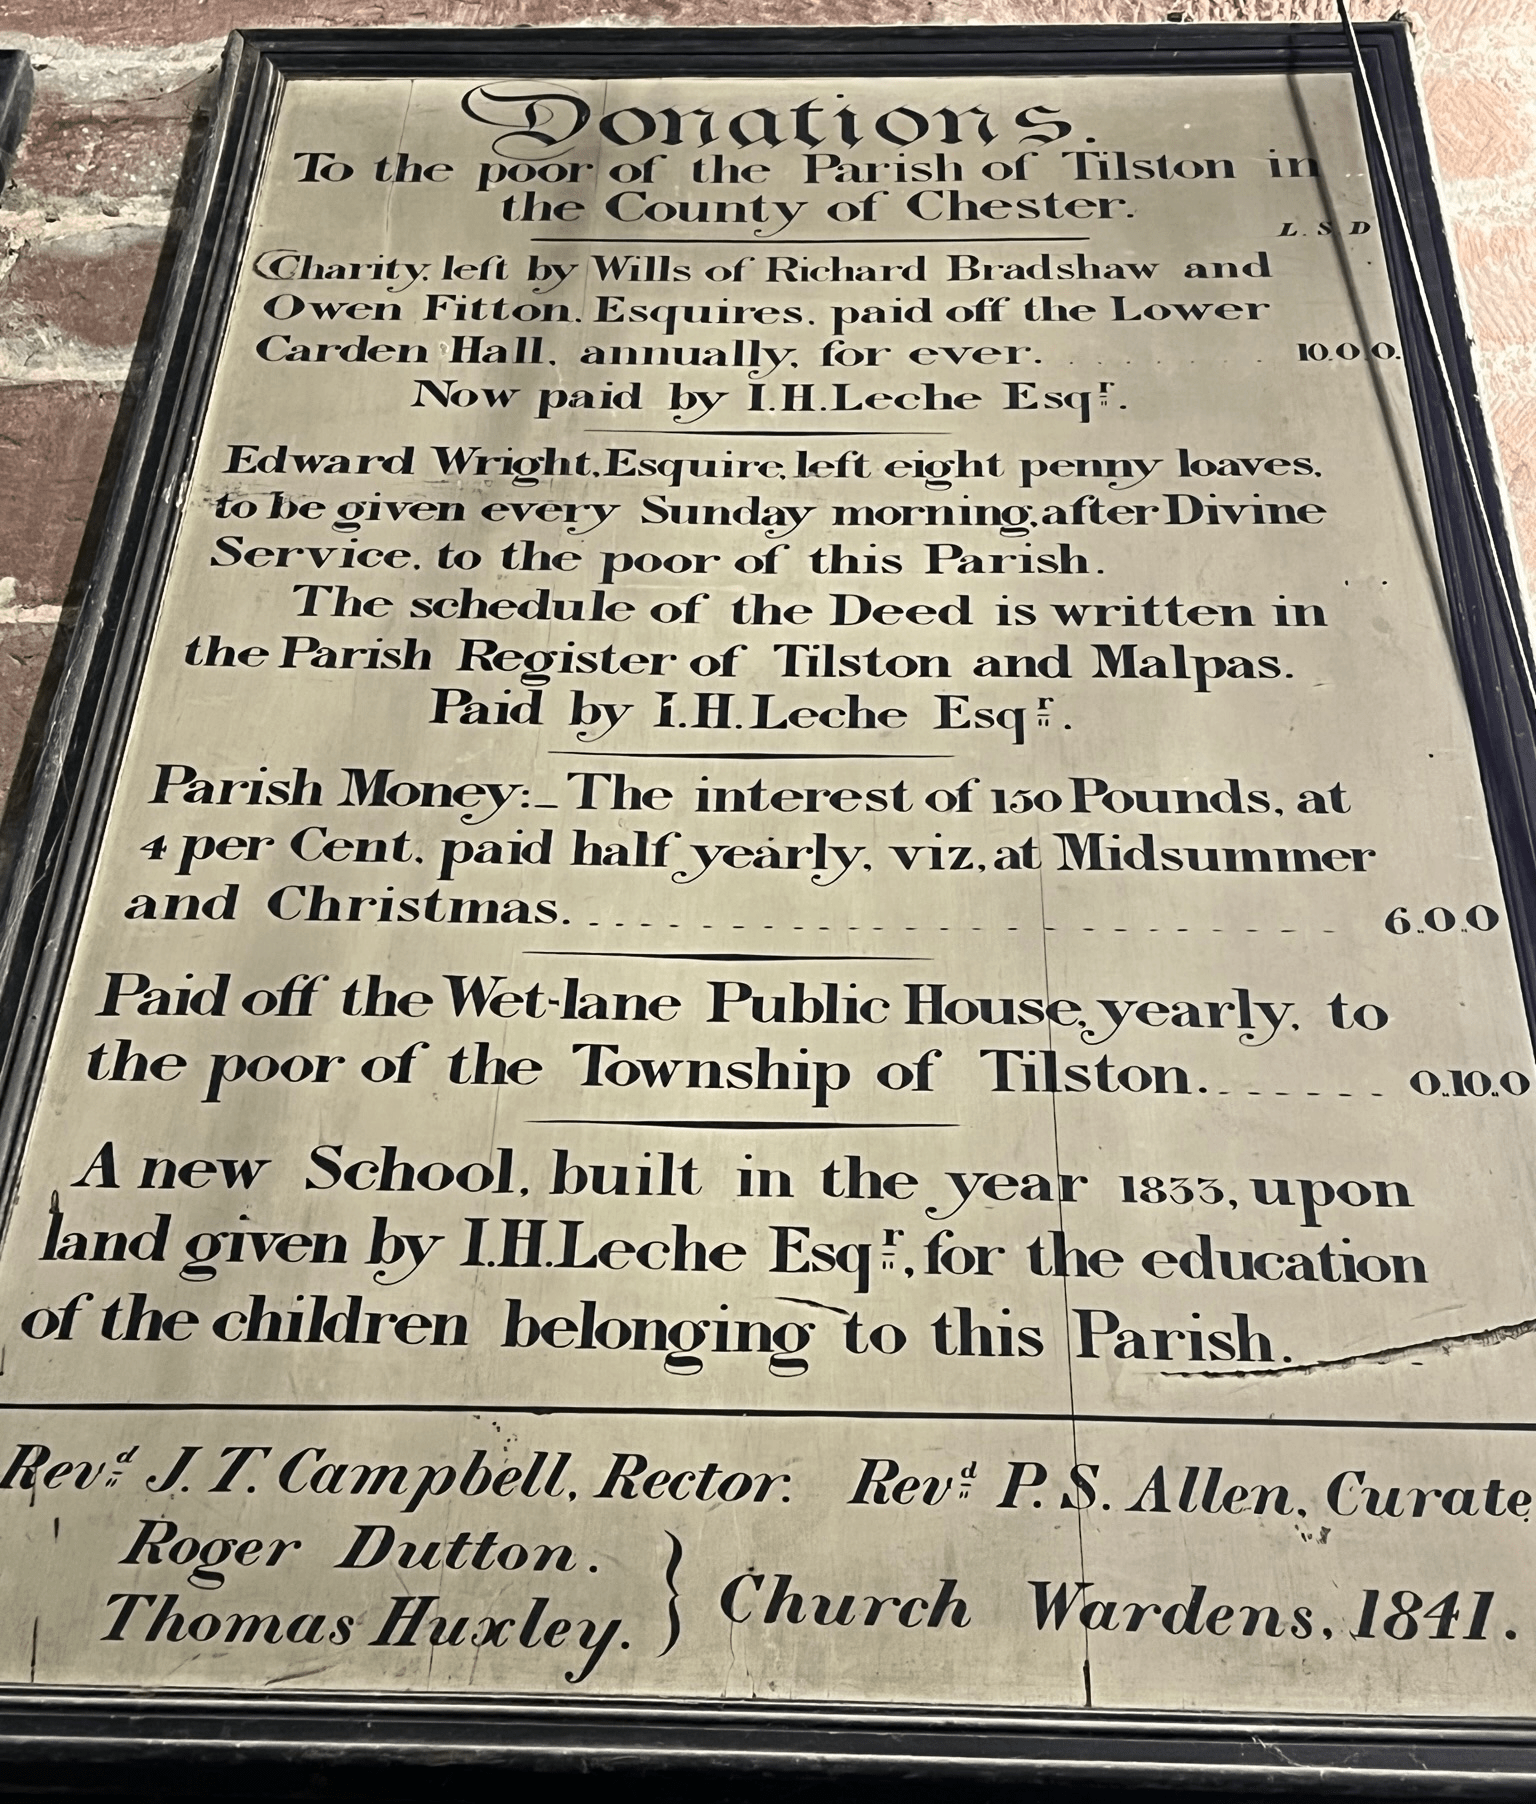 Donations.
To the poor of the Parish of Tilston in
the County of Chester.
L. S D
Charity, left by Wills of Richard Bradshaw and
Owen Fitton, Esquires, paid off the Lower
Carden Hall, annually, for ever. . . . . . . . 10.0.0.
Now paid by I.H.Leche Esqr.
Edward Wright, Esquire, left eight penny loaves,
to be given every Sunday morning, after Divine
Service, to the poor of this Parish.
The schedule of the Deed is written in
the Parish Register of Tilston and Malpas.
Paid by I.H.Leche Esqr.
Parish Money:_ The interest of 150 Pounds, at
4 per Cent, paid half yearly, viz, at Midsummer
and Christmas. . . . . . . . . . . . . . . . . . 6.,0.,0
Paid off the Wet-lane Public House, yearly, to
the poor of the Township of Tilston. . . . . . . 0.,10.,0
A new School, built in the year 1833, upon
land given by I.H.Leche Esqr, for the education
of the children belonging to this Parish.
Revd J. T. Campbell, Rector. Revd P. S. Allen, Curate
Roger Dutton.
Thomas Huxley. } Church Wardens, 1841.